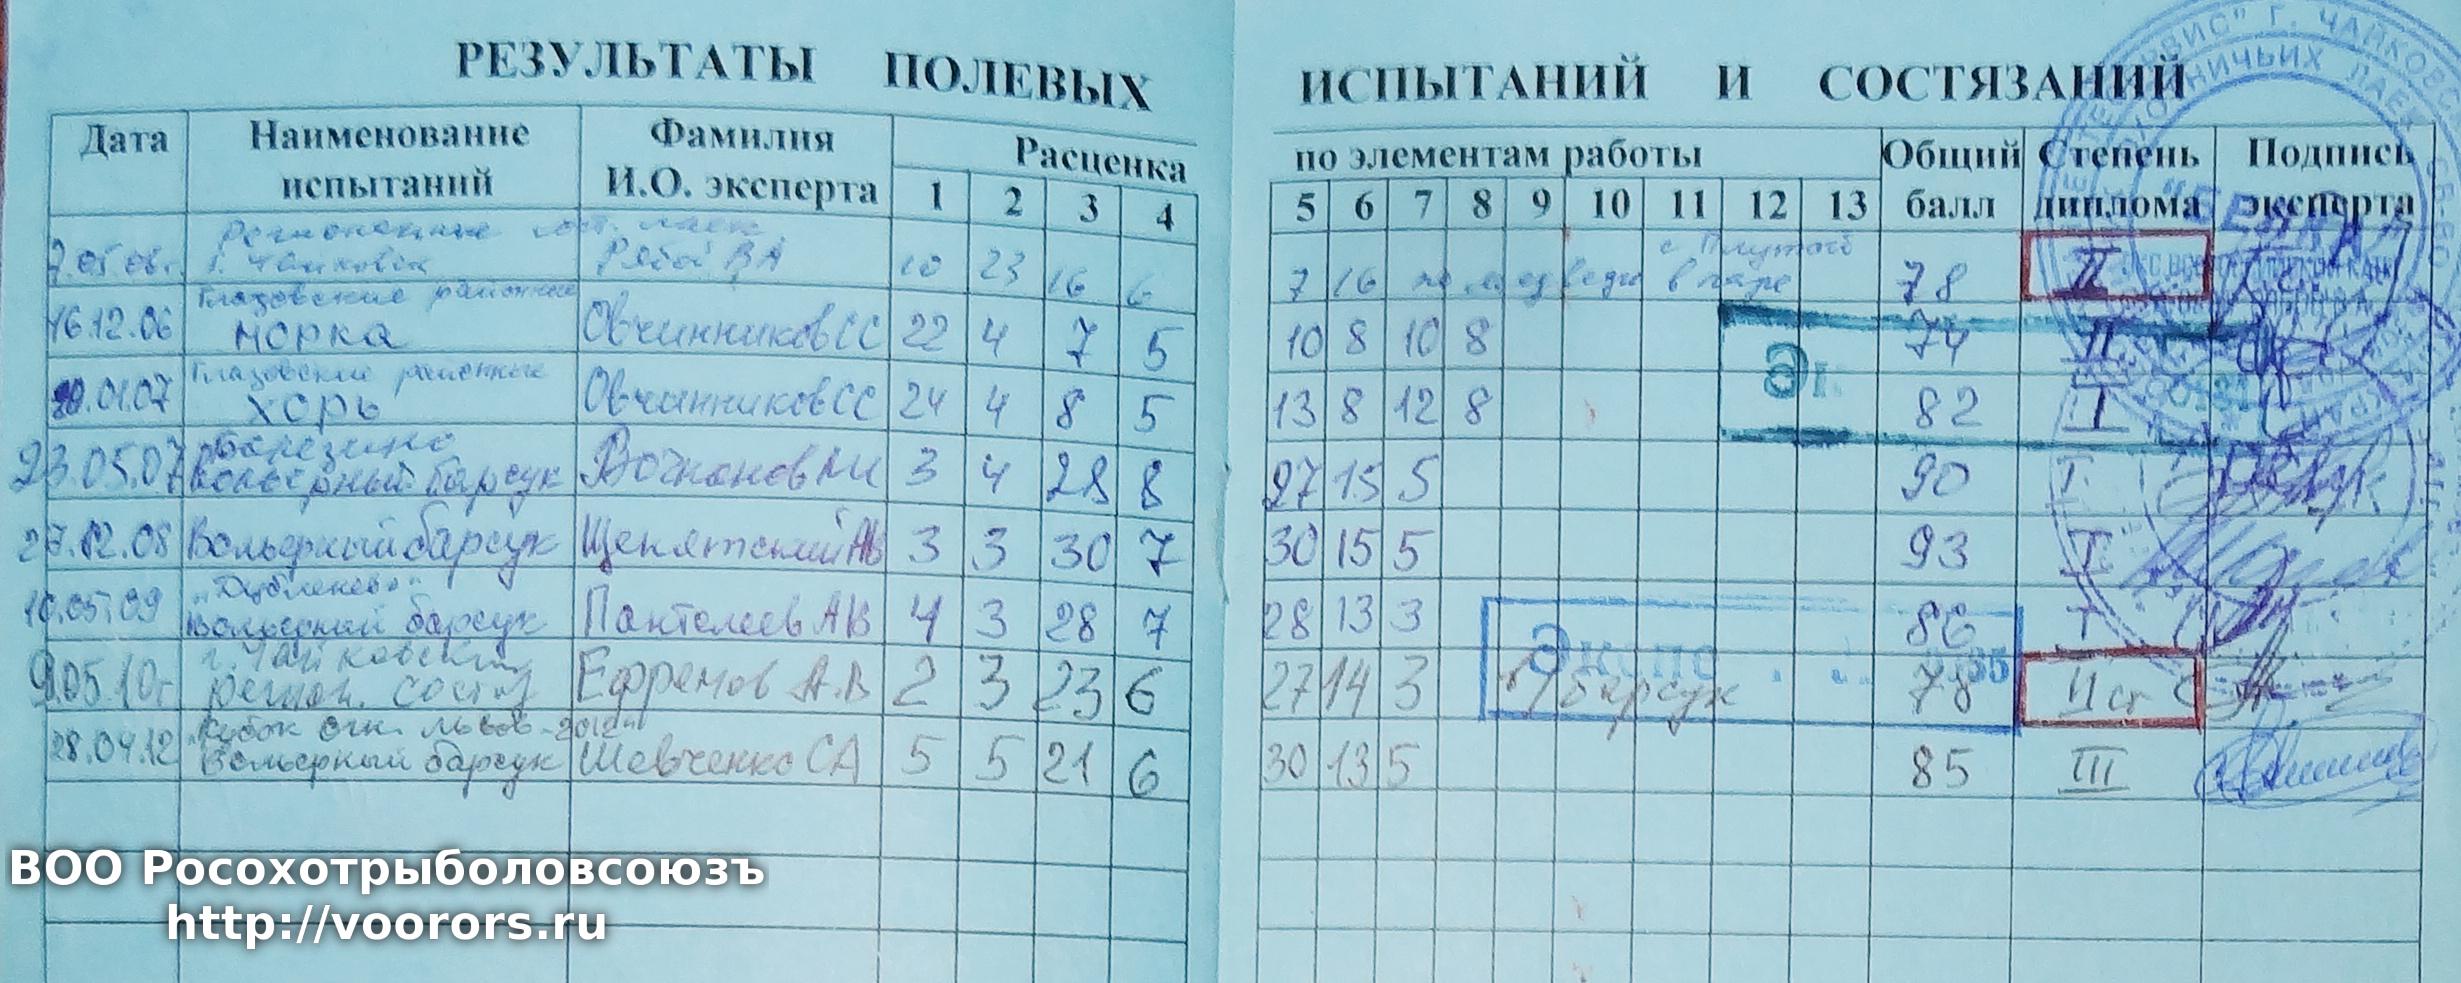 РЕЗУЛЬТАТЫ ПОЛЕВЫХ ИСПЫТАНИЙ И СОСТЯЗАНИЙ
Дата Наименование испытаний Фамилия И.О. эксперта Расценка по элементам работы Общий балл Степень диплома Подпись эксперта
1 2 3 4 5 6 7 8 9 10 11 12 13
Региональные сост. лаек
г. Чайковск Рябов ВА 10 23 16 6 7 16 по медведю в паре с 78 II
Глазовские районные
16.12.06 норка Овчинников СС 22 4 7 5 10 8 10 8 74 II
Глазовские районные
01.07 хорь Овчинников СС 24 4 8 5 13 8 12 8 82 I
23.05.07 вольерный барсук 3 4 28 8 27 15 5 90 I
27.12.08 Вольерный барсук Щенятский АВ 3 3 30 7 30 15 5 93 I
10.05.09 вольерный барсук Пантелеев АВ 4 3 28 7 28 13 3 86 I
г. Чайковский
9.05.10г регион. состяз Ефремов А.В 2 3 23 6 27 14 3 барсук 78 II ст
"Кубок огн. львов-2012"
28.04.12 Вольерный барсук Шевченко СА 5 5 21 6 30 13 5 85 III
ВОО Росохотрыболовсоюзъ
http://voorors.ru